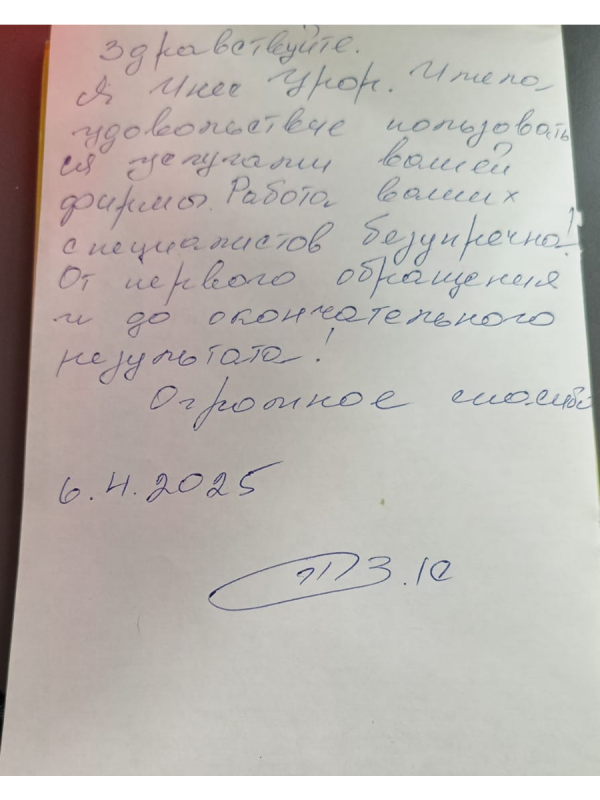 Здравствуйте.
Я Инес Имела
удовольствие пользовать
ся услугами вашей
фирмы. Работа ваших
специалистов безупречна!
От первого обращения
и до окончательного
результата!
Огромное спасибо
6.4.2025